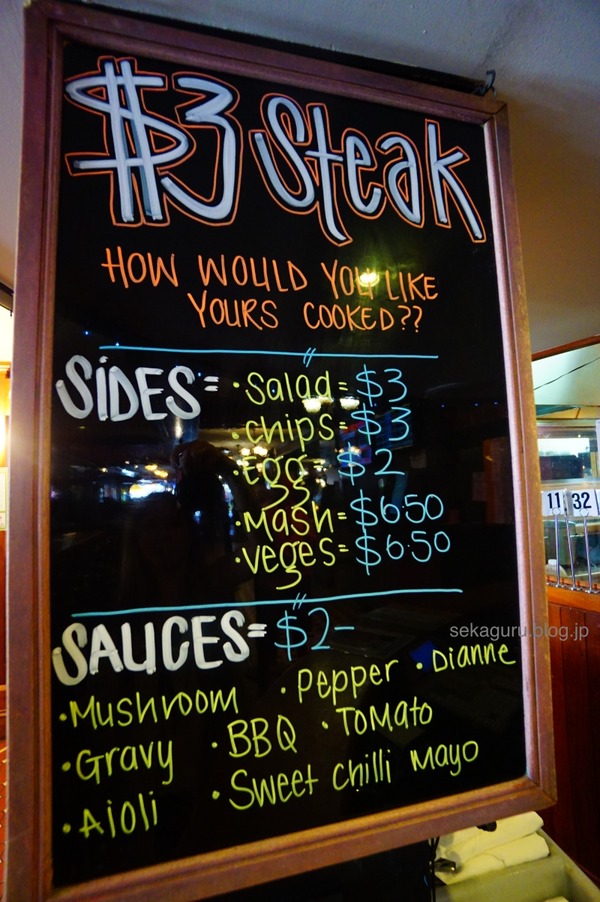 $3 Steak
HOW WOULD YOU LIKE
YOURS COOKED??
SIDES= •Salad=$3
•chips=$3
•Egg=$2
•Mash=$6.50
•veges=$6.50
SAUCES=$2-
•Mushroom •Pepper •Dianne
•Gravy •BBQ •Tomato
•Aioli •Sweet chilli Mayo
11 32
sekaguru.blog.jp